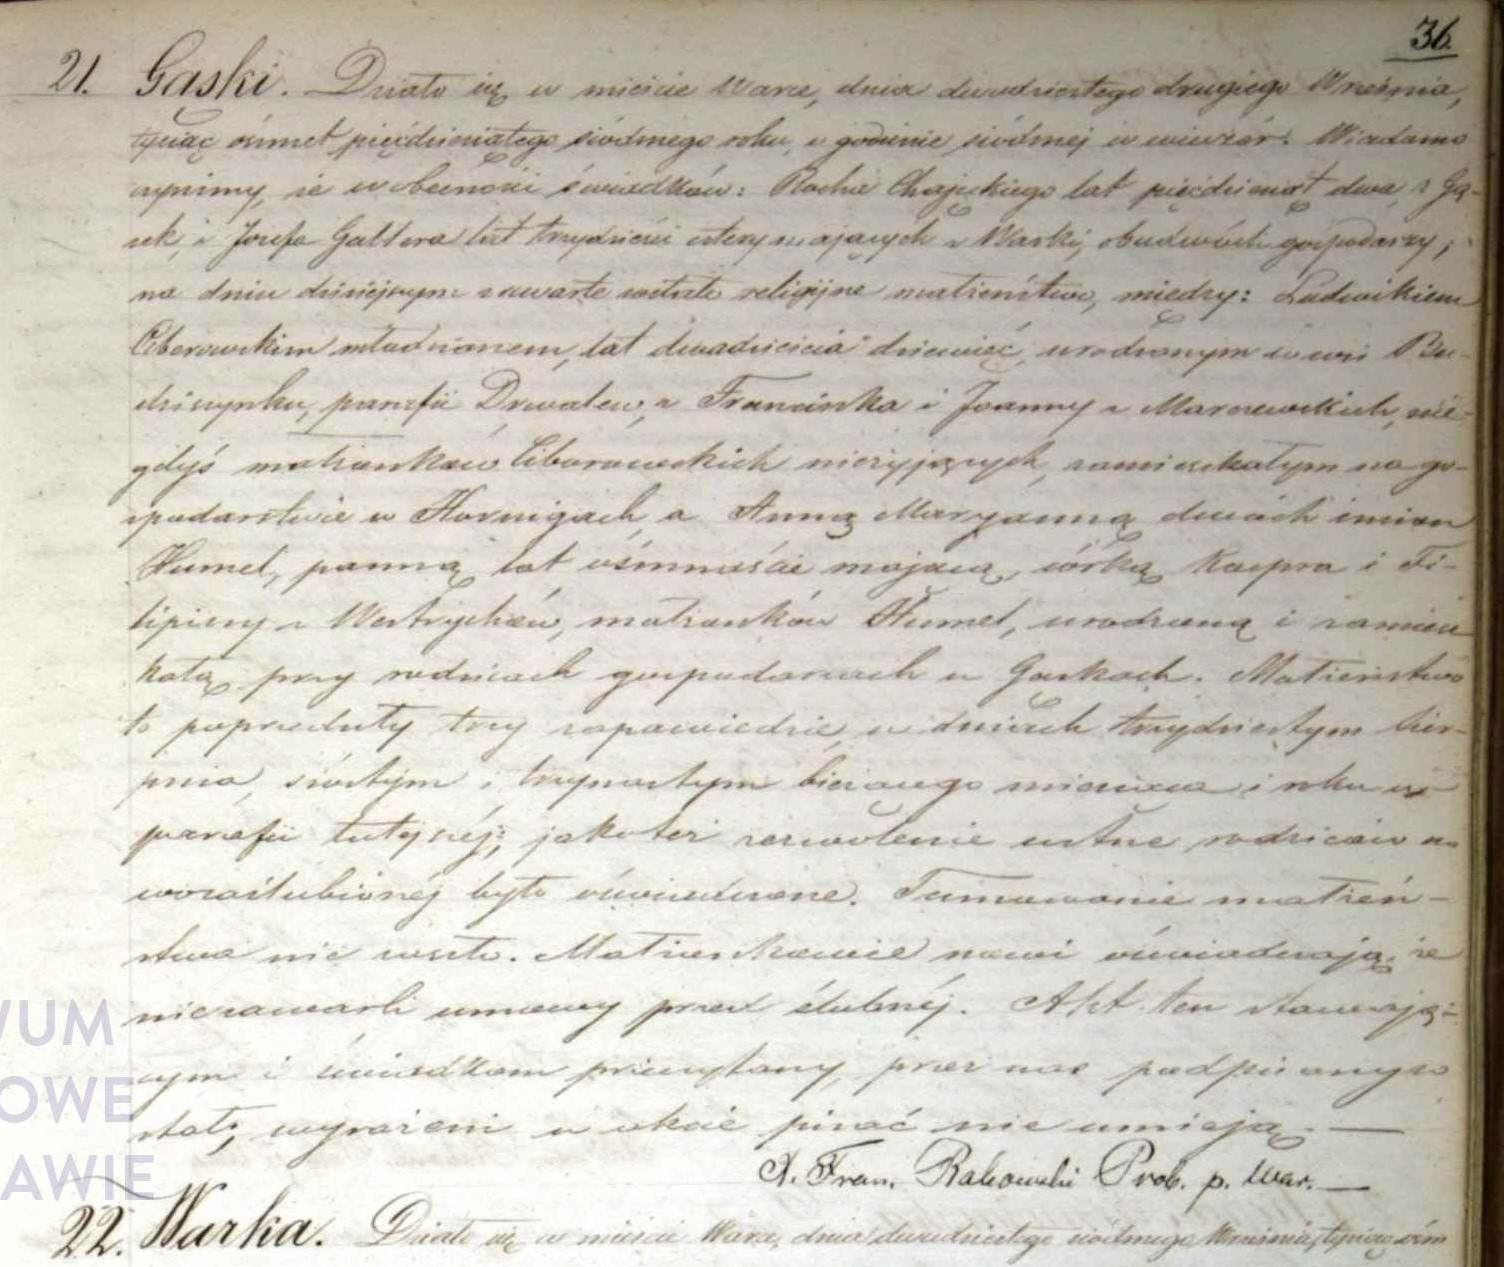 36.
21. Gąski. Działo się w mieście Warce, dnia dwudziestego drugiego Września,
tysiąc ośmset pięćdziesiątego siódmego roku, o godzinie siódmej w wieczór. Wiadomo
czynimy, że w obecności świadków: Rocha Chajęckiego lat pięćdziesiąt dwa, z Gą-
sek, i Józefa Gattera lat trzydzieści cztery mających z Warki, obudwóch gospodarzy,
na dniu dzisiejszym zawarte zostało religijne małżeństwo, między: Ludwikiem
Ciborowskim młodzianem, lat dwadzieścia dziewięć, urodzonym w wsi Bu-
dziszynku, parafii Drwalew, z Franciszka i Joanny z Marszewskich, nie-
gdyś małżonków Ciborowskich nieżyjących, zamieszkałym na go-
spodarstwie w Hornigach, a Anną Maryanną dwóch imion
Humel, panną, lat ośmnaście mającą, córką Kacpra i Fi-
lipiny z Westrychów, małżonków Humel, urodzoną i zamiesz
kałą przy rodzicach gospodarzach w Gąskach. Małżeństwo
to poprzedziły trzy zapowiedzie w dniach trzydziestym Sier-
pnia, szóstym i trzynastym bieżącego miesiąca i roku w
parafii tutejszéj; jakoteż zezwolenie ustne rodziców no
wozaślubionéj było oświadczone. Tamowanie małżeń-
stwa nie zaszło. Małżonkowie nowi oświadczają, że
niezawarli umowy przed ślubnéj. Akt ten stawają-
cym i świadkom przeczytany, przez nas podpisany zo
stał, wyrażeni w akcie pisać nie umieją. —
X. Fran. Rakowski Prob. p. War. —
22. Warka. Działo się w mieście Warce, dnia dwudziestego siódmego Września, tysiąc ośm
WUM
OWE
AWIE